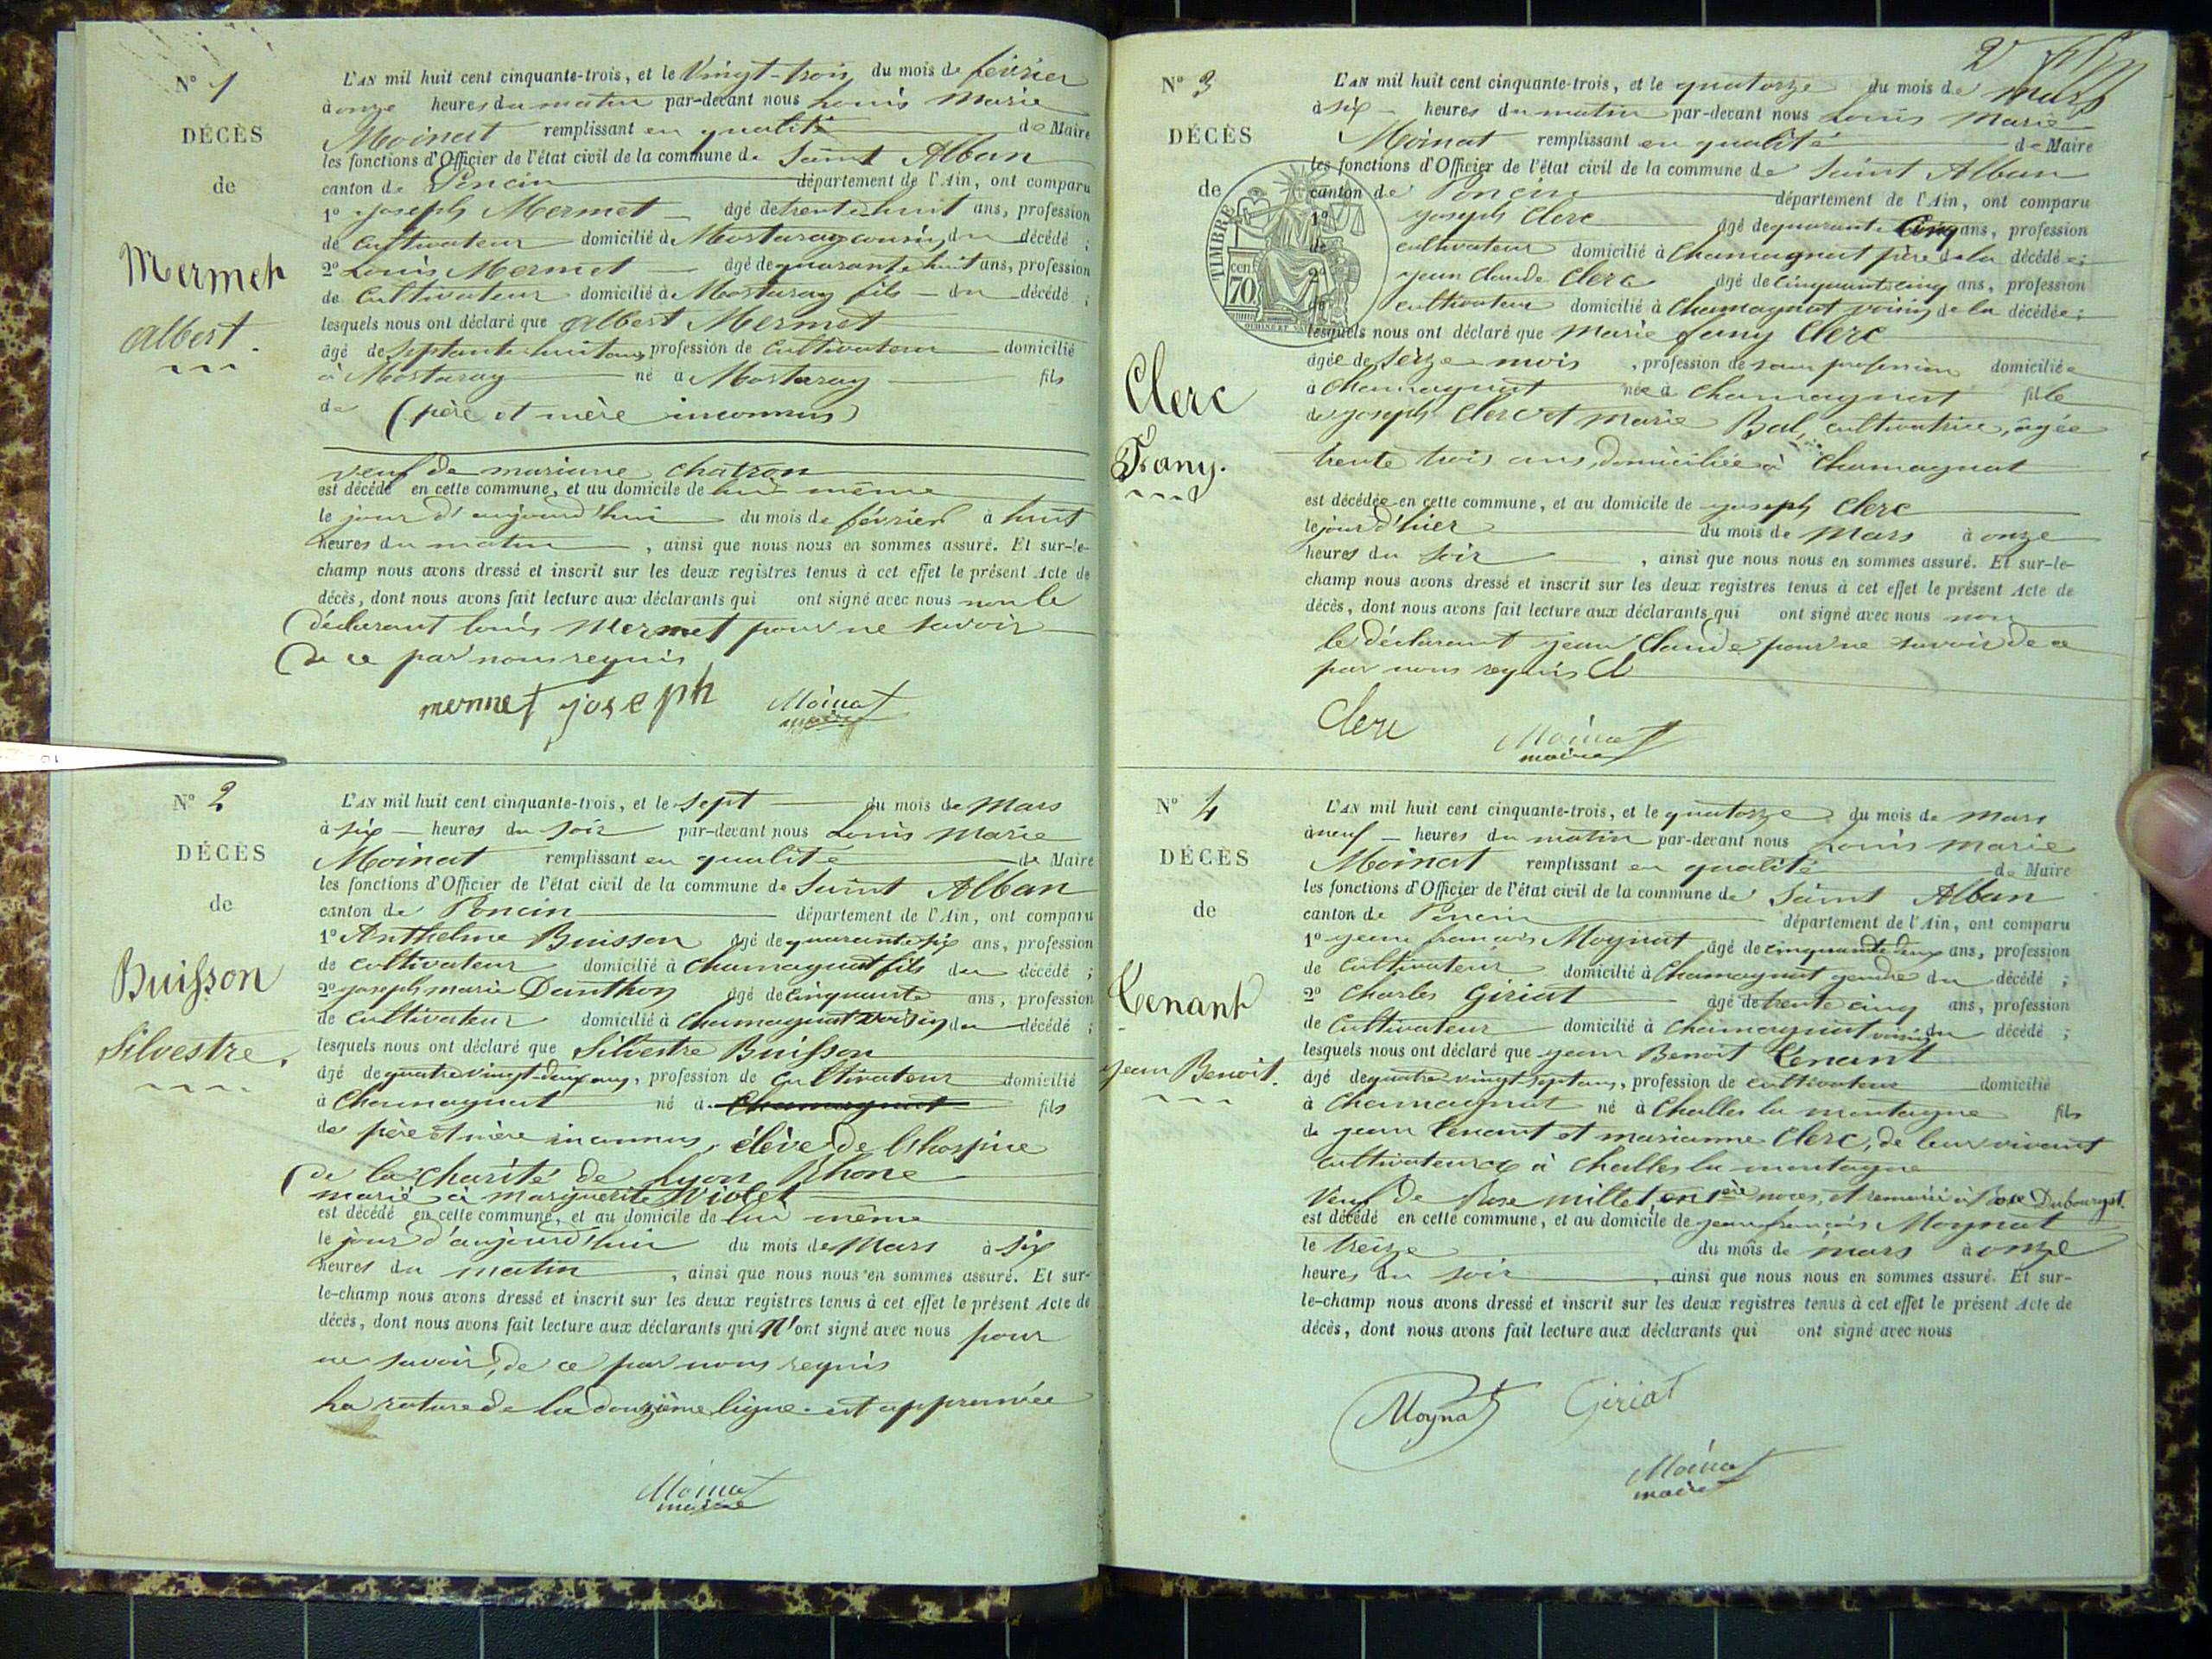 N° 1
DÉCÈS
de
Mermet
Albert.
L'AN mil huit cent cinquante-trois, et le Vingt-trois du mois de février
à onze heures du matin par-devant nous Louis Marie
Moinat remplissant en qualité de Maire
les fonctions d'Officier de l'état civil de la commune de Saint Alban
canton de Poncin département de l'Ain, ont comparu
1° Joseph Mermet âgé de trente huit ans, profession
de Cultivateur domicilié à Mortaray cousin du décédé ;
2° Louis Mermet âgé de quarante huit ans, profession
de Cultivateur domicilié à Mortaray fils du décédé ;
lesquels nous ont déclaré que Albert Mermet
âgé de septante huit ans, profession de Cultivateur domicilié
à Mortaray né à Mortaray fils
de (père et mère inconnus)
veuf de mariane chatron
est décédé en cette commune, et au domicile de lui même
le jour d'aujourd'hui du mois de février à huit
heures du matin, ainsi que nous nous en sommes assuré. Et sur-le-
champ nous avons dressé et inscrit sur les deux registres tenus à cet effet le présent Acte de
décès, dont nous avons fait lecture aux déclarants qui ont signé avec nous non le
déclarant louis Mermet pour ne savoir
de ce par nous requis
mermet joseph Moinat
maire
N° 2
DÉCÈS
de
Buisson
Silvestre.
L'AN mil huit cent cinquante-trois, et le sept du mois de Mars
à six heures du soir par-devant nous Louis Marie
Moinat remplissant en qualité de Maire
les fonctions d'Officier de l'état civil de la commune de Saint Alban
canton de Poncin département de l'Ain, ont comparu
1° Anthelme Buisson âgé de quarante six ans, profession
de cultivateur domicilié à Chamagnat fils du décédé ;
2° joseph marie Danthon âgé de cinquante ans, profession
de cultivateur domicilié à Chamagnat voisin du décédé ;
lesquels nous ont déclaré que Silvestre Buisson
âgé de quatre vingt deux ans, profession de Cultivateur domicilié
à Chamagnat né à Chamagnat fils
de père et mère inconnus, élève de l'hospice
de la Charité de Lyon Rhone
marié à Marguerite Violet
est décédé en cette commune, et au domicile de lui même
le jour d'aujourd'hui du mois de Mars à six
heures du matin, ainsi que nous nous en sommes assuré. Et sur-
le-champ nous avons dressé et inscrit sur les deux registres tenus à cet effet le présent Acte de
décès, dont nous avons fait lecture aux déclarants qui n'ont signé avec nous pour
ne savoir, de ce par nous requis
La rature de la douzième ligne est approuvée
Moinat
maire
2e
N° 3
DÉCÈS
de
Clerc
Fany.
TIMBRE
70 cen
L'AN mil huit cent cinquante-trois, et le quatorze du mois de mars
à six heures du matin par-devant nous Louis Marie
Moinat remplissant en qualité de Maire
les fonctions d'Officier de l'état civil de la commune de Saint Alban
canton de Poncin département de l'Ain, ont comparu
1° joseph Clerc âgé de quarante cinq ans, profession
de cultivateur domicilié à Chamagnat père de la décédée ;
2° jean Claude Clerc âgé de cinquante cinq ans, profession
de cultivateur domicilié à Chamagnat voisin de la décédée ;
lesquels nous ont déclaré que Marie fany Clerc
âgée de seize mois, profession de sans profession domiciliée
à Chamagnat née à Chamagnat fille
de joseph Clerc et marie Bal, cultivatrice, âgée
trente trois ans, domiciliée à Chamagnat
est décédée en cette commune, et au domicile de joseph Clerc
le jour d'hier du mois de Mars à onze
heures du soir, ainsi que nous nous en sommes assuré. Et sur-le-
champ nous avons dressé et inscrit sur les deux registres tenus à cet effet le présent Acte de
décès, dont nous avons fait lecture aux déclarants qui ont signé avec nous non
le déclarant jean Claude pour ne savoir de ce
par nous requis
Clerc Moinat
maire
N° 4
DÉCÈS
de
Tenant
jean Benoit.
L'AN mil huit cent cinquante-trois, et le quatorze du mois de mars
à neuf heures du matin par-devant nous Louis Marie
Moinat remplissant en qualité de Maire
les fonctions d'Officier de l'état civil de la commune de Saint Alban
canton de Poncin département de l'Ain, ont comparu
1° jean françois Moynat âgé de cinquante deux ans, profession
de cultivateur domicilié à Chamagnat gendre du décédé ;
2° Charles Giriat âgé de trente cinq ans, profession
de Cultivateur domicilié à Chamagnat voisin du décédé ;
lesquels nous ont déclaré que jean Benoit Tenant
âgé de quatre vingt sept ans, profession de cultivateur domicilié
à Chamagnat né à Challes la montagne fils
de jean Tenant et marianne Clerc, de leur vivant
cultivateurs à Challes la montagne
Veuf de Rose millet, en 1ère noces, et remarié à Rose Dubourget.
est décédé en cette commune, et au domicile de jean françois Moynat
le treize du mois de mars à onze
heures du soir, ainsi que nous nous en sommes assuré. Et sur-
le-champ nous avons dressé et inscrit sur les deux registres tenus à cet effet le présent Acte de
décès, dont nous avons fait lecture aux déclarants qui ont signé avec nous
Moynat Giriat
Moinat
maire